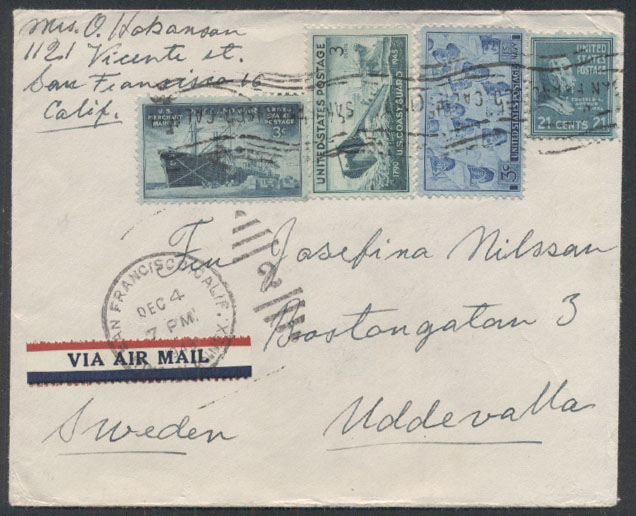 Mrs. O. Hokanson
1121 Vicente st.
San Francisco 16
Calif.
MERCHANT MARINE
UNITED STATES POSTAGE
3¢
UNITED STATES POSTAGE 3
1790 U.S. COAST GUARD 1945
UNITED STATES POSTAGE
3¢
UNITED STATES POSTAGE
21 CENTS 21
SAN FRANCISCO, CALIF.
DEC 4
7 PM
2
VIA AIR MAIL
Fru Josefina Nilsson
Bastongatan 3
Uddevalla
Sweden